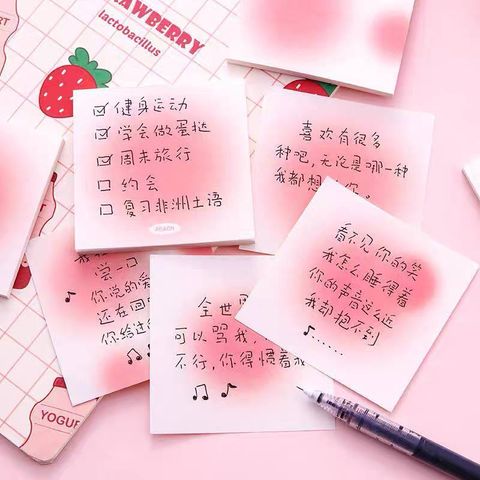 STRAWBERRY
lactobacillus
健身运动
学会做蛋挞
周末旅行
约会
复习非洲土语
喜欢有很多
种吧,无论是哪一种
我都想
看不见你的笑
我怎么睡得着
你的声音这么近
我却抱不到
♪……
尝一口
你说的爱
还在回
你给过
全世
可以骂我,
不行,你得惯着我
YOGUR